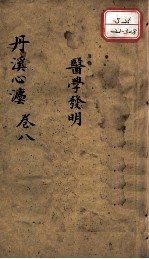 醫學發明
丹溪心法 卷八